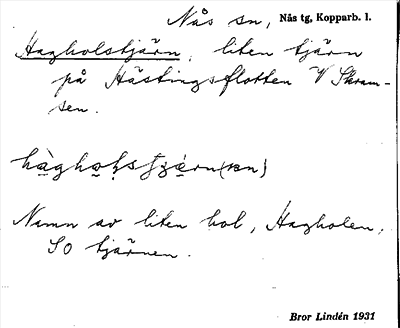 Nås sn, Nås tg, Kopparb. l.
Hagholstjärn, liten tjärn
på Hästingsflotten V Skram-
sen.
Namn av liten hol, Hagholen,
SO tjärnen.
Bror Lindén 1931